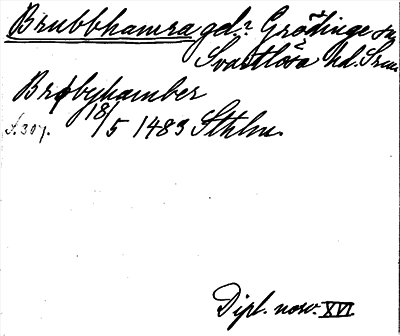 Brubbhamra gd. Grödinge sn
Svartlösa hd. Srm.
Brøbyhamber
18/5 1483 Sthlm.
S. 307.
Dipl. norv. XVI.